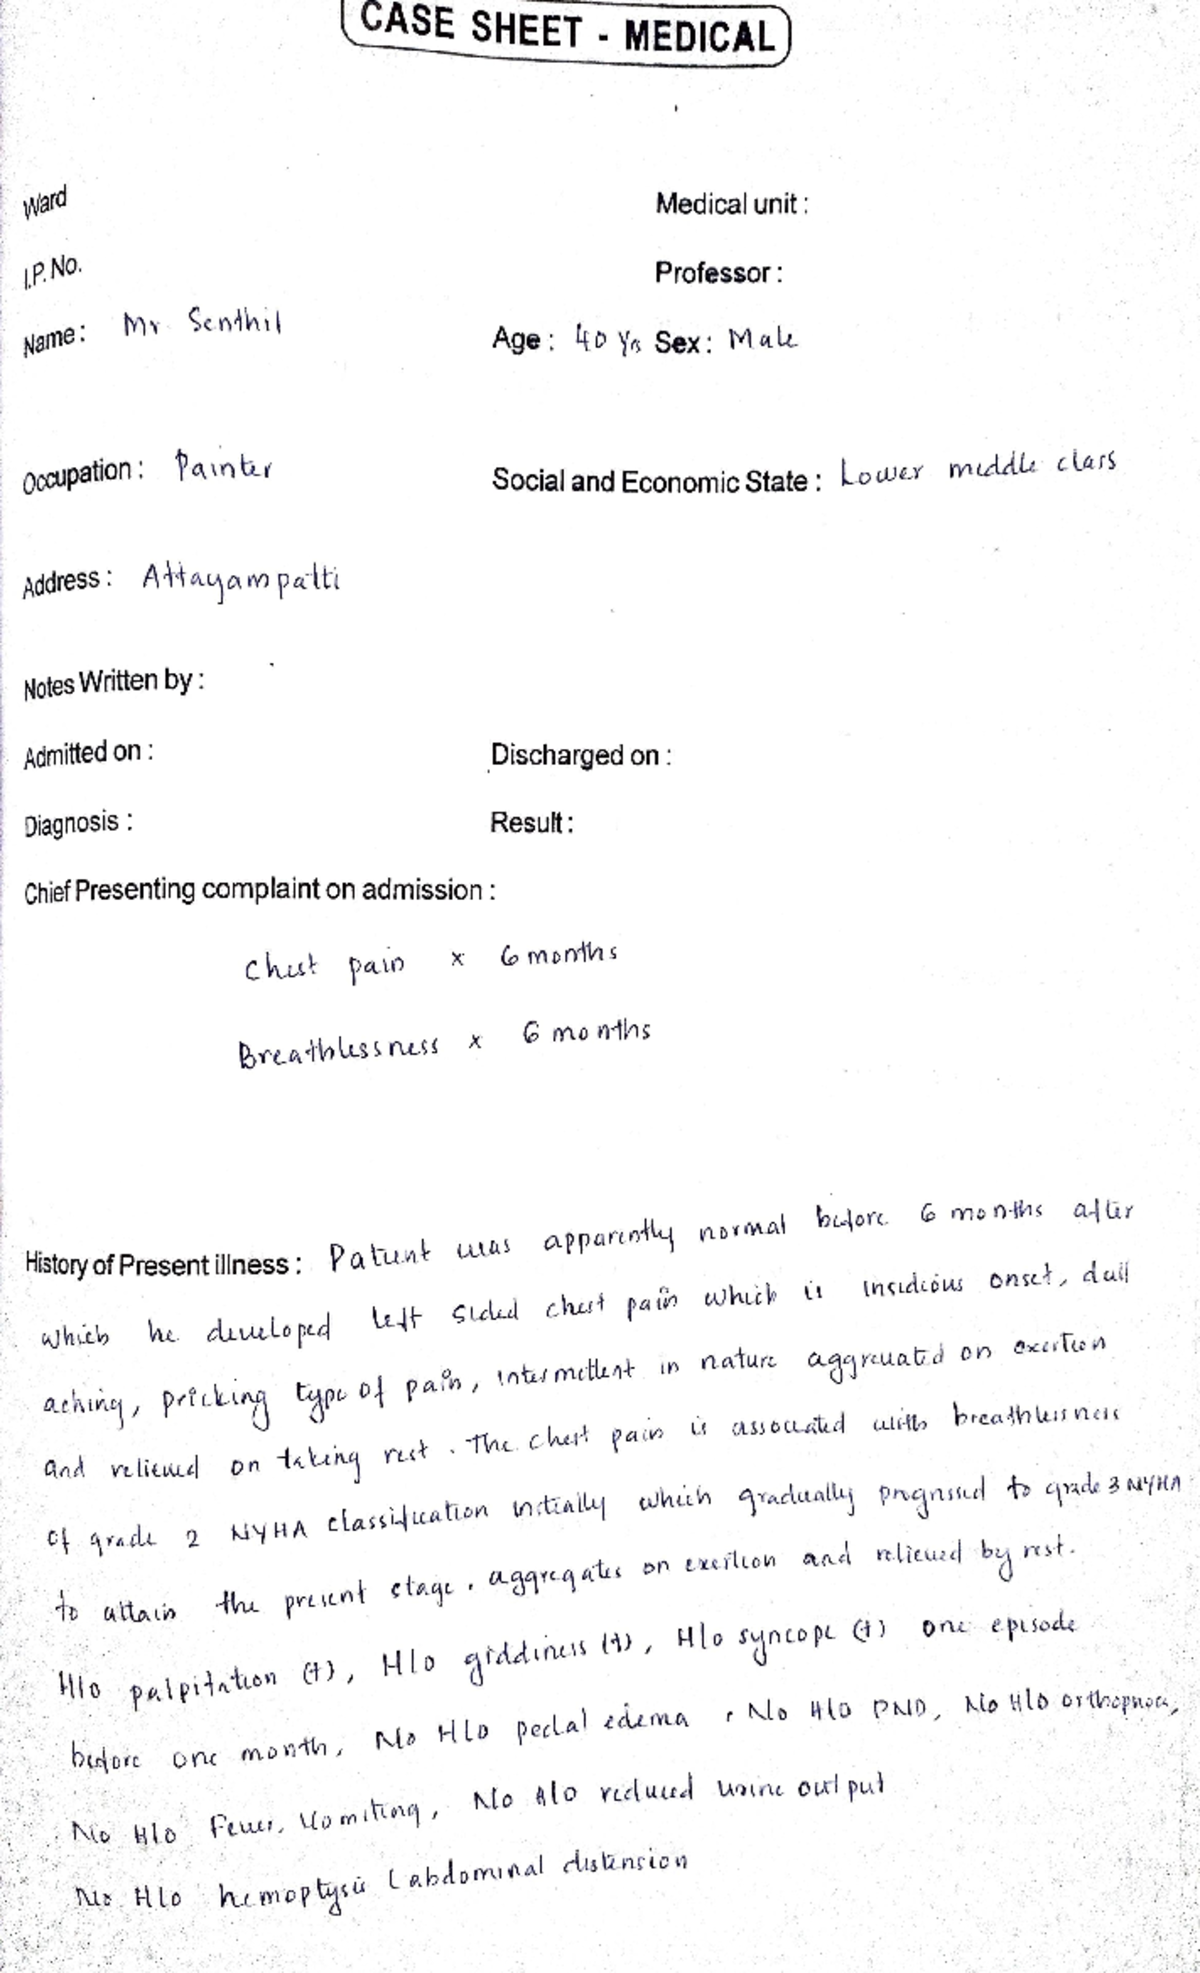 CASE SHEET - MEDICAL
Ward
Medical unit :
I.P. No.
Professor :
Name : Mr Senthil
Age : 40 Yrs Sex : Male
Occupation : Painter
Social and Economic State : Lower middle class
Address : Attayampatti
Notes Written by :
Admitted on :
Discharged on :
Diagnosis :
Result :
Chief Presenting complaint on admission :
Chest pain x 6 months
Breathlessness x 6 months
History of Present illness : Patient was apparently normal before 6 months after
which he developed left sided chest pain which is insidious onset, dull
aching, pricking type of pain, intermittent in nature aggrevated on exertion
and relieved on taking rest. The chest pain is associated with breathlessness
of grade 2 NYHA classification initially which gradually progressed to grade 3 NYHA
to attain the present stage, aggregates on exertion and relieved by rest.
H/o palpitation (+), H/o giddiness (+), H/o syncope (+) one episode
before one month, No H/o pedal edema, No H/o PND, No H/o orthopnoea,
No H/o Fever, Vomiting, No H/o reduced urine output
No H/o hemoptysis / abdominal distension